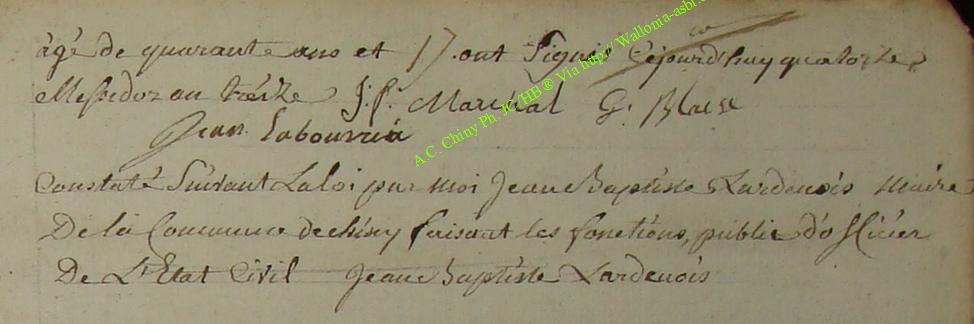 âgé de quarante ans et 17. ont Signés Cejourd'huy quatorze
Messidor an treize J. f. Marchal G. Blaise
Jean Labourria
Constaté Suivant La loi par Moi Jean Baptiste Lardenois Maire
De la Commune de chiny faisant les fonctions, public d'officier
De L'Etat Civil Jean Baptiste Lardenois
A.C. Chiny Ph. JC/HB® Via http://Wallonia-asbl